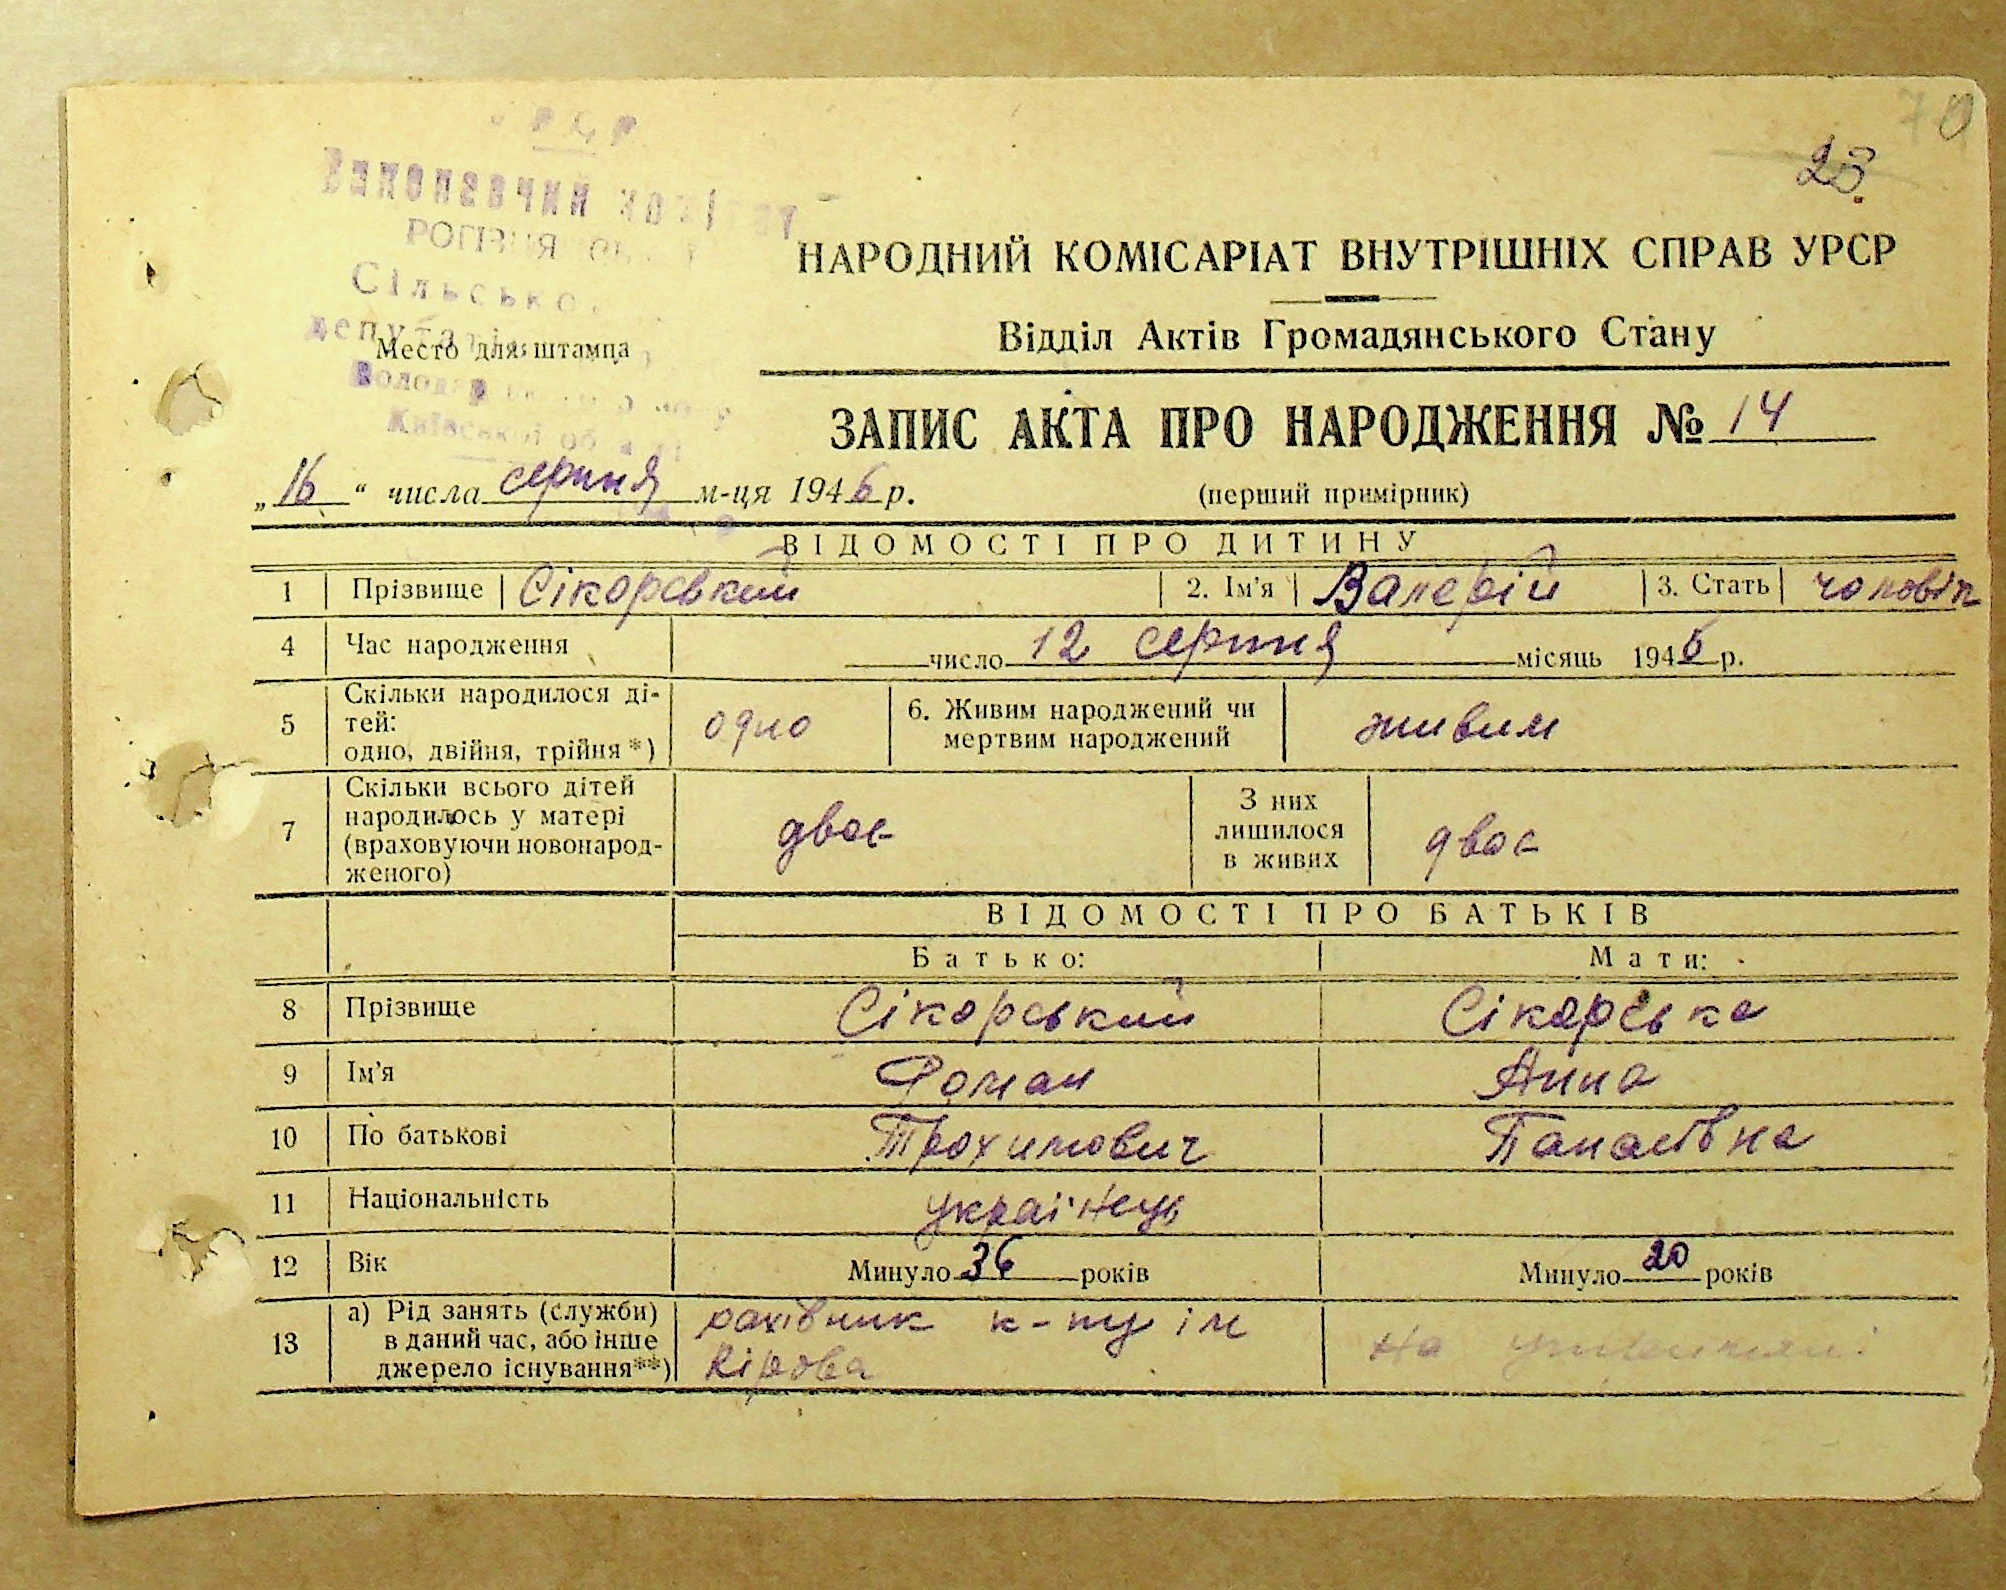 70
28.
УРСР
Виконавчий комітет
РОГІЗНЯНСЬКОЇ
Сільської
депутатів
Место для штампа
Володарського району
Київської області
НАРОДНИЙ КОМІСАРІАТ ВНУТРІШНІХ СПРАВ УРСР
Відділ Актів Громадянського Стану
ЗАПИС АКТА ПРО НАРОДЖЕННЯ № 14
„16“ числа серпня м-ця 1946 р. (перший примірник)
ВІДОМОСТІ ПРО ДИТИНУ
1 Прізвище Сікорський 2. Ім'я Валерій 3. Стать чоловіч
4 Час народження число 12 серпня місяць 1946 р.
5 Скільки народилося ді-
тей:
одно, двійня, трійня *) одно 6. Живим народжений чи
мертвим народжений живим
7 Скільки всього дітей
народилось у матері
(враховуючи новонарод-
женого) двоє З них
лишилося
в живих двоє
ВІДОМОСТІ ПРО БАТЬКІВ
Батько: Мати:
8 Прізвище Сікорський Сікорська
9 Ім'я Роман Анна
10 По батькові Трохимович Панасівна
11 Національність українець
12 Вік Минуло 36 років Минуло 20 років
13 а) Рід занять (служби)
в даний час, або інше
джерело існування**) рахівник к-пу ім
Кірова На утриманні